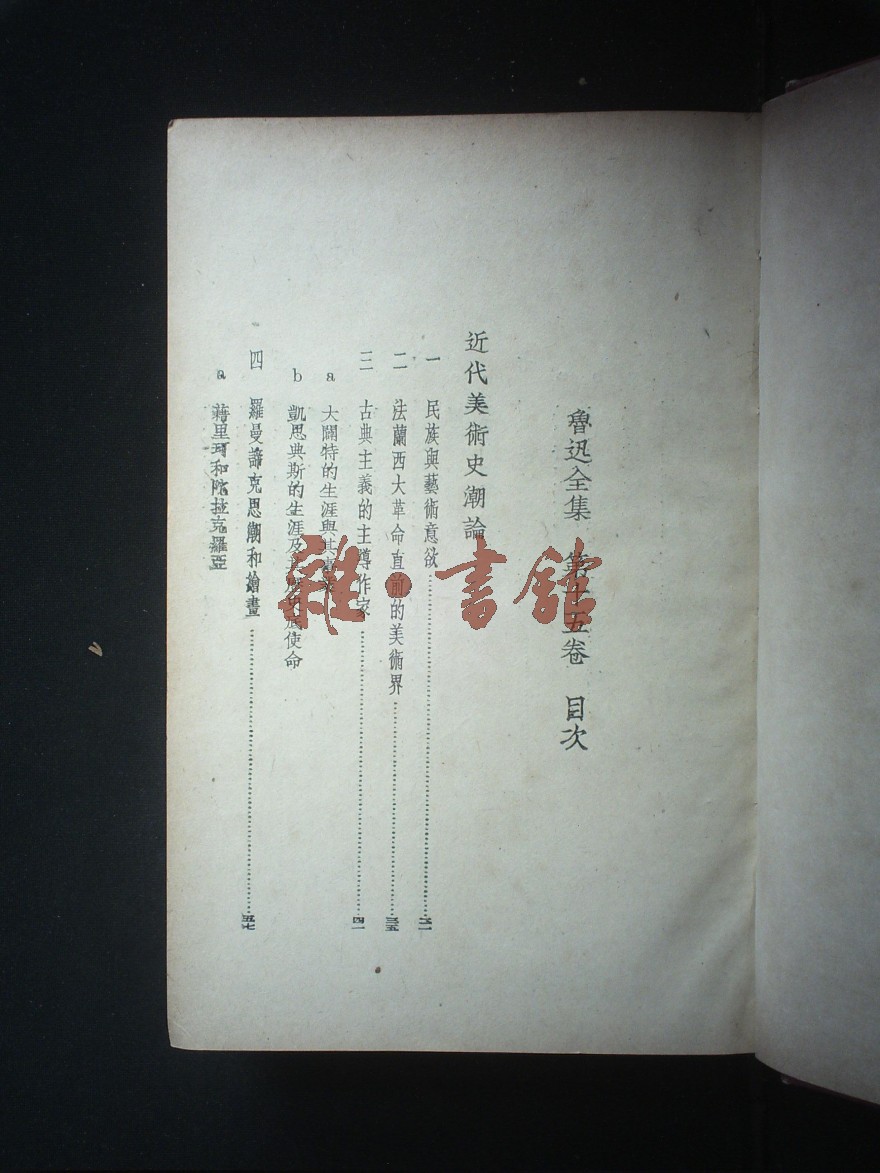 魯迅全集 第十五卷 目次
近代美術史潮論
一 民族與藝術意欲
二 法蘭西大革命直前的美術界 三五
三 古典主義的主導作家 四一
a 大闢特的生涯與其
b 凱思典斯的生涯及其底使命
四 羅曼諦克思潮和繪畫 五七
a 藉里珂和陀拉克羅亞
雜·書館